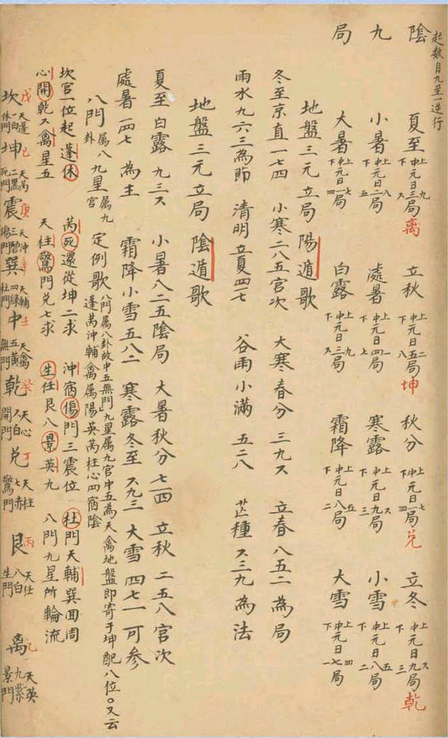 起數自九至一逆行
陰 夏至上九中元日三局下ス離 立秋上二中元日五局下八坤 秋分上七中元日一局下四兑 立冬上ス中元日九局下三乾
九 小暑上八中元日二局下五 處暑上一中元日四局下七 寒露上ス中元日九局下三 小雪上五中元日八局下二
局 大暑上七中元日一局下四 白露上九中元日三局下ス 霜降上五中元日八局下二 大雪上四中元日七局下一
地盤三元立局陽遁歌
冬至京直一七四 小寒二八五官次 大寒春分三九ス 立春八五二為局
雨水九六三為節 清明立夏四一七 谷雨小滿五二八 芒種ス三九為法
地盤三元立局陰遁歌
夏至白露九三ス 小暑八二五陰局 大暑秋分七一四 立秋二五八官次
處暑一四七為主 霜降小雪五八二 寒露冬至ス九三 大雪四七一可参
八門屬八卦九星屬九宮定例歌 八門屬八卦故中五無門九星屬九宮中五為天禽地盤即寄于坤配八位〇又云
蓬芮沖輔禽屬陽英芮柱心四宿陰
坎官一位起蓬休 芮死還從坤二求 沖宿傷門三震位 杜門天輔巽囬周
心開乾ス禽星五 天柱驚門兑七求 生任艮八景英九 八門九星所輪流
坎戊天蓬一白休門 坤己天芮二黑死門 震庚天冲 巽辛天輔四綠杜門 中壬天禽五黄無門 乾癸天心六白開門 兑丁天柱七赤驚門 艮丙天任八白生門 離乙天英九紫景門